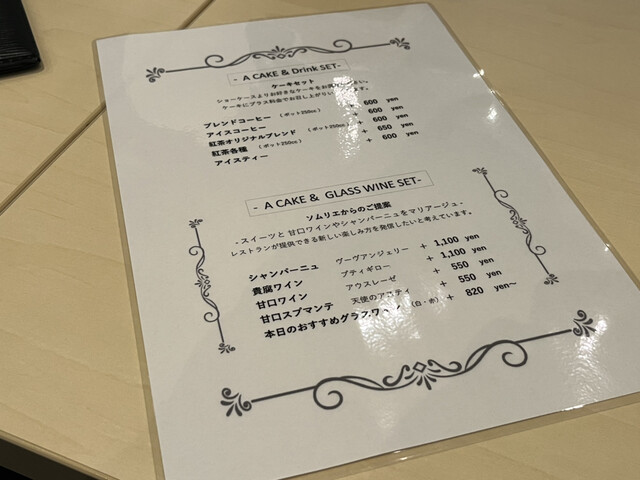 - A CAKE & Drink SET-
ケーキセット
ショーケースよりお好きなケーキをお気
ケーキにプラス料金でお召し上がりい ます。
ブレンドコーヒー (ポット250cc) + 600 yen
アイスコーヒー + 600 yen
紅茶オリジナルブレンド (ポット250cc) + 600 yen
紅茶各種 (ポット250cc) + 650 yen
アイスティー + 600 yen
- A CAKE & GLASS WINE SET-
ソムリエからのご提案
- スイーツと 甘口ワインやシャンパーニュをマリアージュ -
レストランが提供できる新しい楽しみ方を発信したいと考えています。
シャンパーニュ ヴーヴアンジェリー + 1,100 yen
貴腐ワイン プティギロー + 1,100 yen
甘口ワイン アウスレーゼ + 550 yen
甘口スプマンテ 天使のアスティ + 550 yen
本日のおすすめグラスワイン (白・赤) + 820 yen～